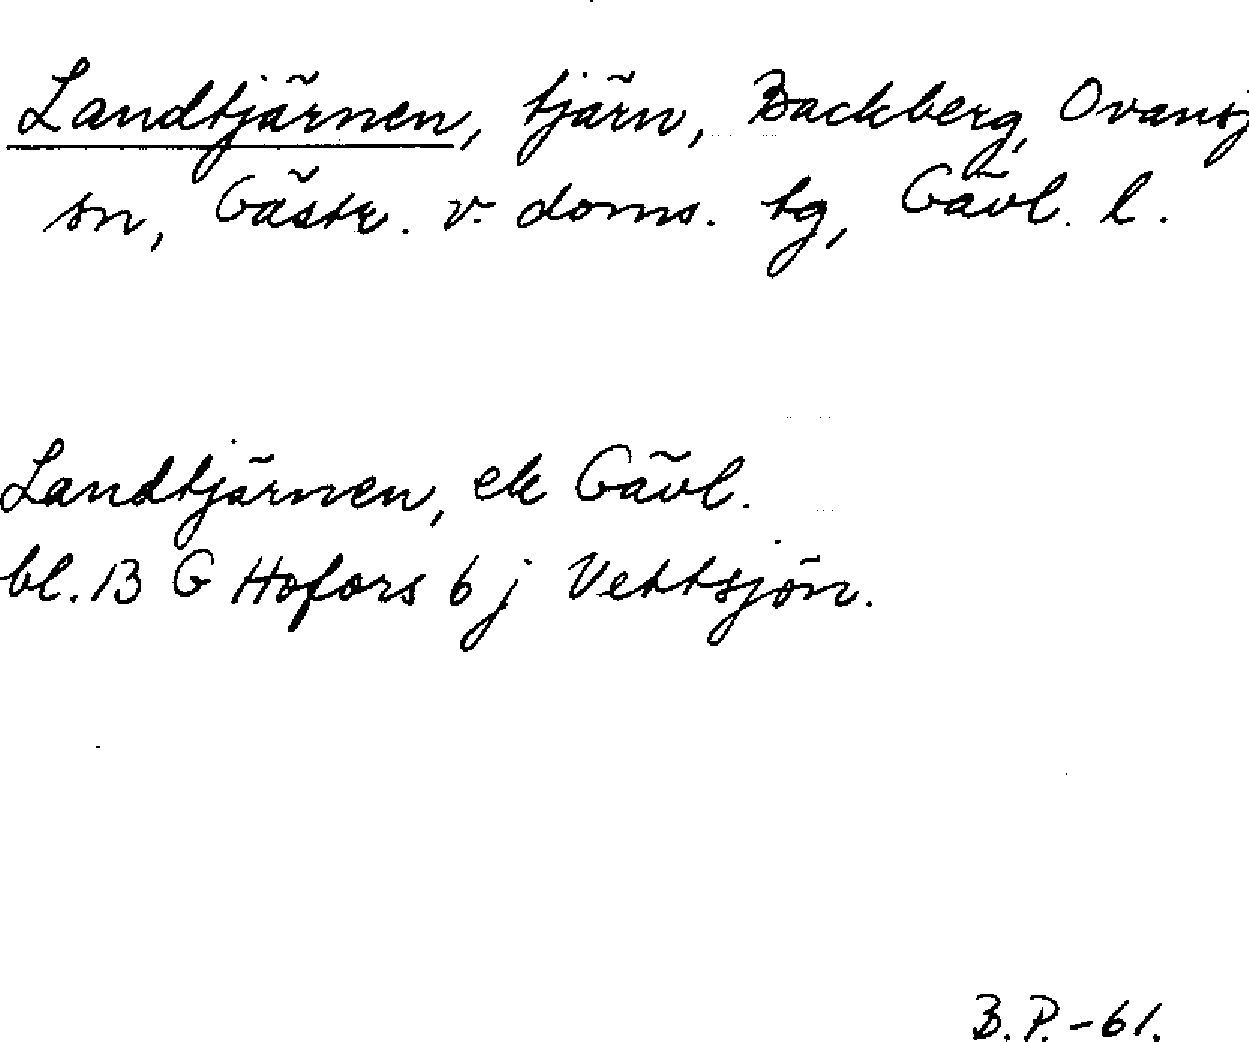 Landtjärnen, tjärn, Backberg, Ovansj
sn, Gästr. v. doms. tg, Gävl. l.
Landtjärnen, ek Gävl.
bl. 13 G Hofors 6 j Vettsjön.
B.P.-61.